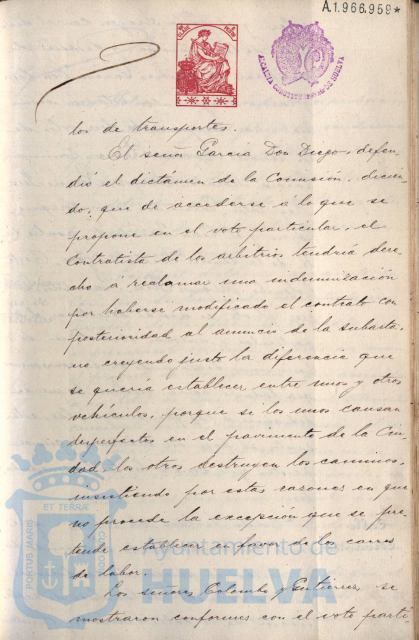 A.1.966.959*
ALCALDIA CONSTITUCIONAL DE HUELVA
los de transportes.
El señor Garcia Don Diego, defen-
dió el dictámen de la Comisión, dicien-
do, que de accederse á lo que se
propone en el voto particular, el
Contratista de los arbitrios tendría dere-
cho á reclamar una indemnización
por haberse modificado el contrato con
posterioridad al anuncio de la subasta,
no creyendo justo la diferencia que
se quería establecer entre unos y otros
vehículos, porque si los unos causan
desperfectos en el pavimento de la Ciu-
dad, los otros destruyen los caminos,
insistiendo por estas razones en que
no procede la excepción que se pre-
tende establecer á favor de los carros
de labor.
Los señores Colombo y Gutierrez se
mostraron conformes con el voto parti-
PORTUS MARIS
ET TERRÆ
CUSTODIA
Ayuntamiento de
HUELVA